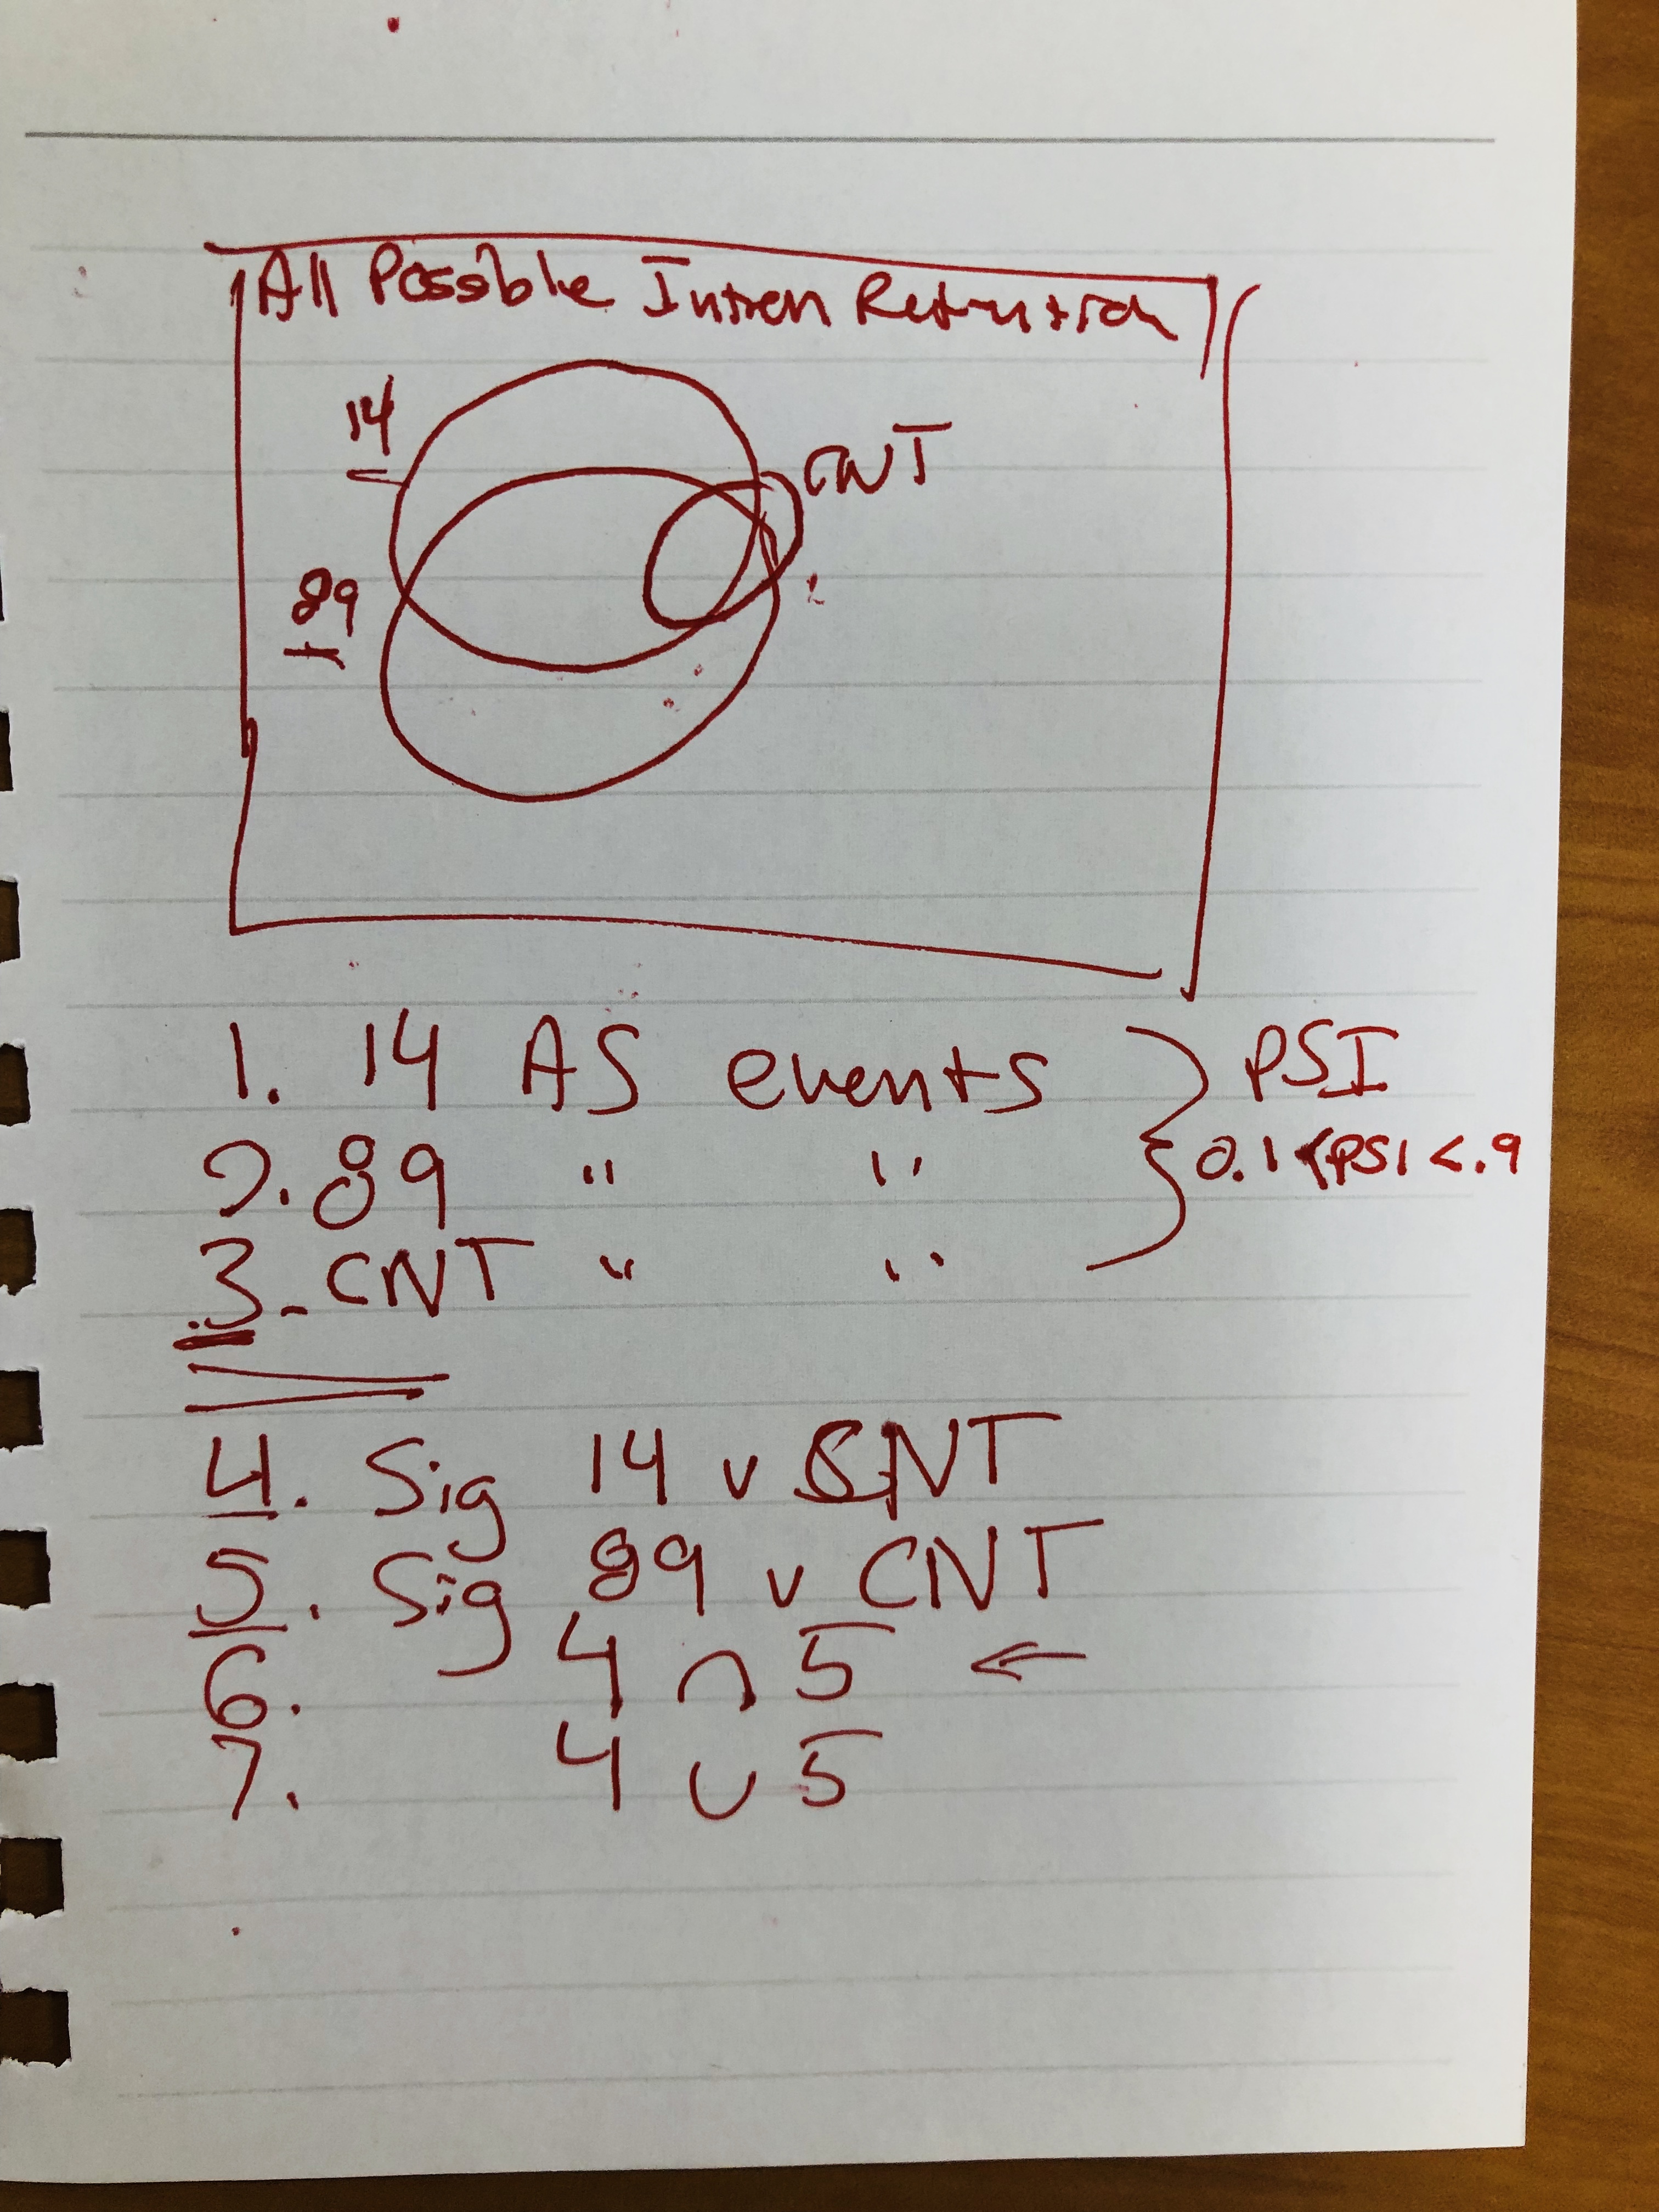 All Possible Intron Retention
14
CNT
89
1. 14 AS events } PSI
2. 89 " " 0.1 < PSI < .9
3. CNT " "
4. Sig 14 v CNT
5. Sig 89 v CNT
6. 4 ∩ 5 ←
7. 4 ∪ 5